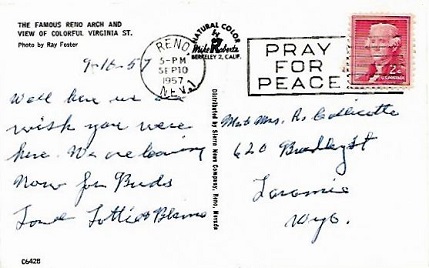 THE FAMOUS RENO ARCH AND
VIEW OF COLORFUL VIRGINIA ST.
Photo by Ray Foster
9-10-57
Well here we
wish you were
here. We are leaving
Now for
Love Lottie &
C6428
NATURAL COLOR
Mike Roberts
BERKELEY 2, CALIF.
Distributed by Sierra News Company, Reno, Nevada
RENO
5-PM
SEP 10
1957
NEV.
PRAY
FOR
PEACE
2¢
Mr & Mrs. R.
620 St
Laramie
Wyo.